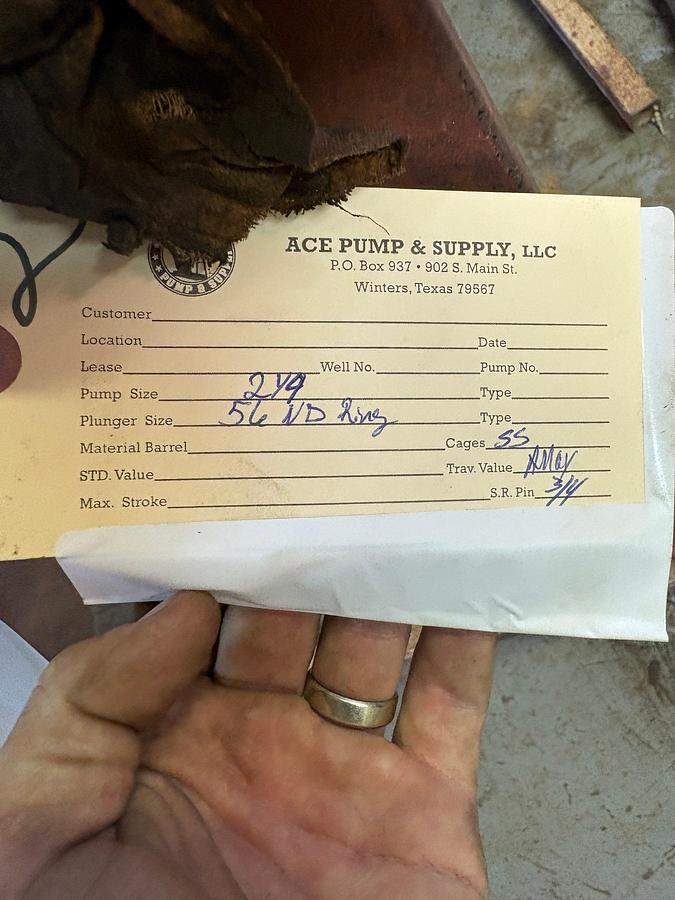 ACE PUMP & SUPPLY, LLC
P.O. Box 937 • 902 S. Main St.
Winters, Texas 79567
PUMP & SUPP
Customer
Location Date
Lease Well No. Pump No.
Pump Size 2 1/4 Type
Plunger Size 56 ND Ring Type
Material Barrel Cages SS
STD. Value Trav. Value
Max. Stroke S.R. Pin 3/4